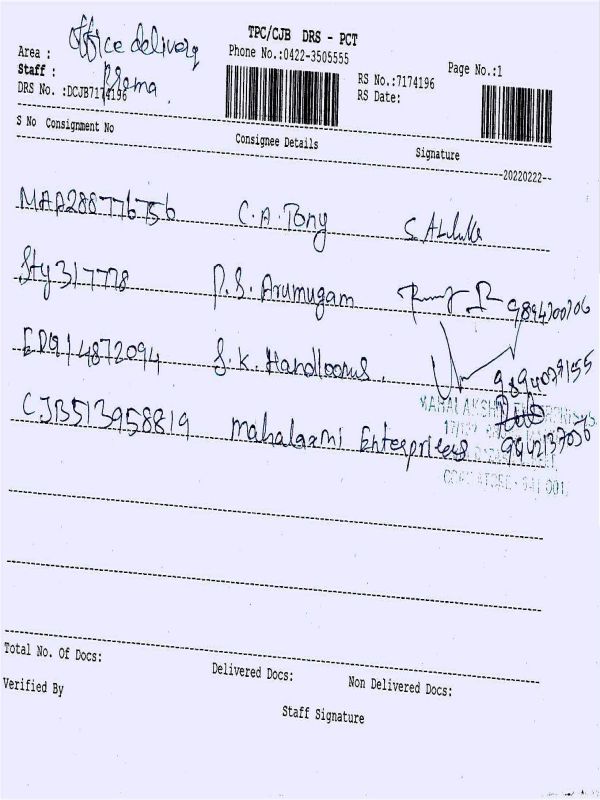 TPC/CJB DRS - PCT
Area : Office delivery
Phone No.:0422-3505555
Page No.:1
Staff : Prema
RS No.:7174196
DRS No. :DCJB7174196
RS Date:
S No Consignment No Consignee Details Signature
20220222
MAA288776756 C.A. Tony
317778 P.S. Arumugam 9894200206
ED914872094 S.K. Handlooms. 9894079155
CJB513958819 Mahalaxmi Enterprises 9942137056
641 001.
Total No. Of Docs:
Delivered Docs:
Non Delivered Docs:
Verified By
Staff Signature